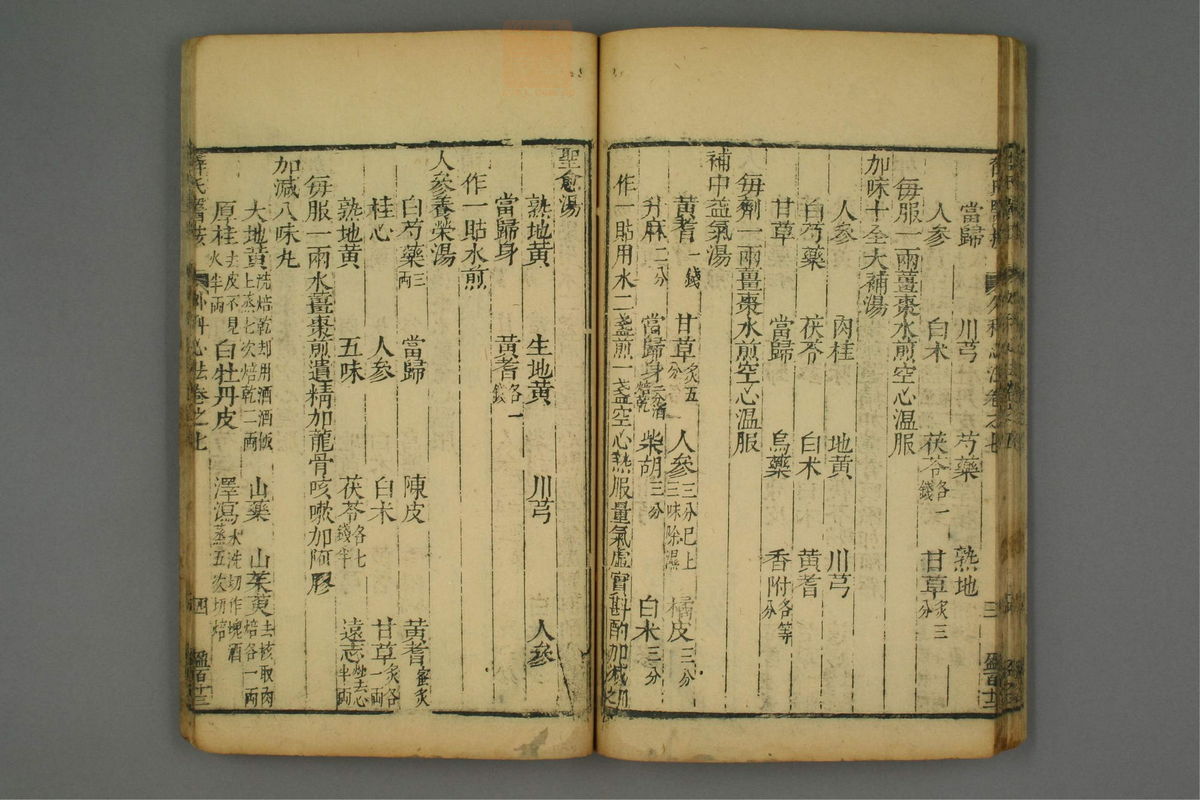 當歸 川芎 芍藥 熟地
人參 白朮 茯苓各一錢 甘草炙三分
每服一兩薑棗水煎空心温服
加味十全大補湯
人參 肉桂 地黄 川芎
白芍藥 茯苓 白朮 黄耆
甘草 當歸 烏藥 香附各等分
每劑一兩薑棗水煎空心温服
補中益氣湯
黄耆一錢 甘草炙五分 人參三分已上三味除濕 橘皮三分
升麻二分 當歸身二分酒焙乾 柴胡三分 白朮三分
作一貼用水二盞煎一盞空心熱服量氣虚實斟酌加減用之
聖愈湯
熟地黄 生地黄 川芎 人參
當歸身 黄耆各一錢
作一貼水煎
人參養榮湯
白芍藥三兩 當歸 陳皮 黄耆蜜炙
桂心 人參 白朮 甘草炙各一兩
熟地黄 五味 茯苓各七錢半 遠志炒去心半兩
每服一兩水薑棗煎遺精加龍骨咳嗽加阿膠
加減八味丸
大地黄洗焙乾却用酒酒飯上蒸七次焙乾二兩 山藥 山茱萸去核取肉焙各一兩
厚桂去皮不見火半兩 白牡丹皮 澤瀉水洗切作塊酒蒸五次切焙
薛氏醫按 外科心法卷之七 四 盈百十三